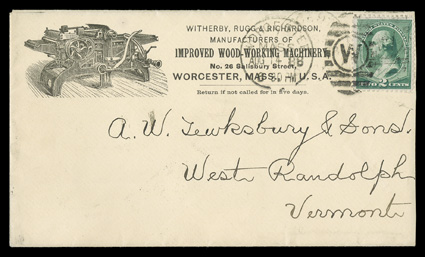 WITHERBY, RUGG & RICHARDSON,
MANUFACTURERS OF
IMPROVED WOOD-WORKING MACHINERY,
No. 26 Salisbury Street,
WORCESTER, MASS., U.S.A.
Return if not called for in five days.
W
A. W. Tewksbury & Sons.
West Randolph
Vermont